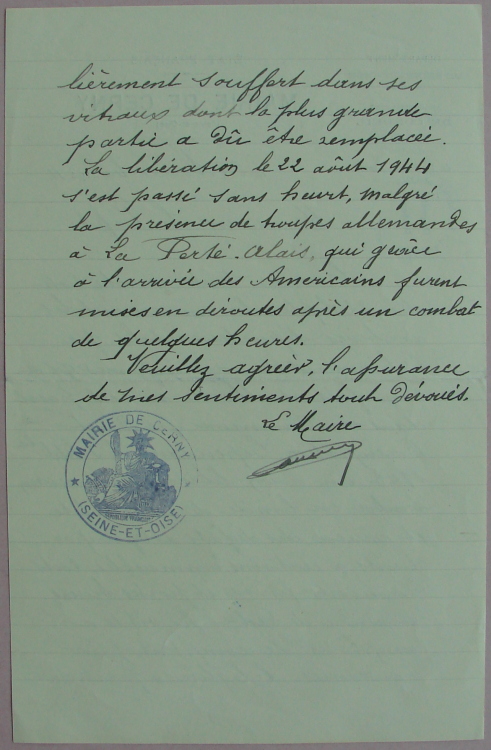 lièrement souffert dans ses
vitraux dont la plus grande
partie a dû être remplacée.
La libération le 22 août 1944
s'est passé sans heurt, malgré
la présence de troupes allemandes
à La Ferté-Alais, qui grâce
à l'arrivée des Américains furent
mises en déroutes après un combat
de quelques heures.
Veuillez agréer, l'assurance
de mes sentiments tout dévoués.
Le Maire
MAIRIE DE CERNY
(SEINE-ET-OISE)